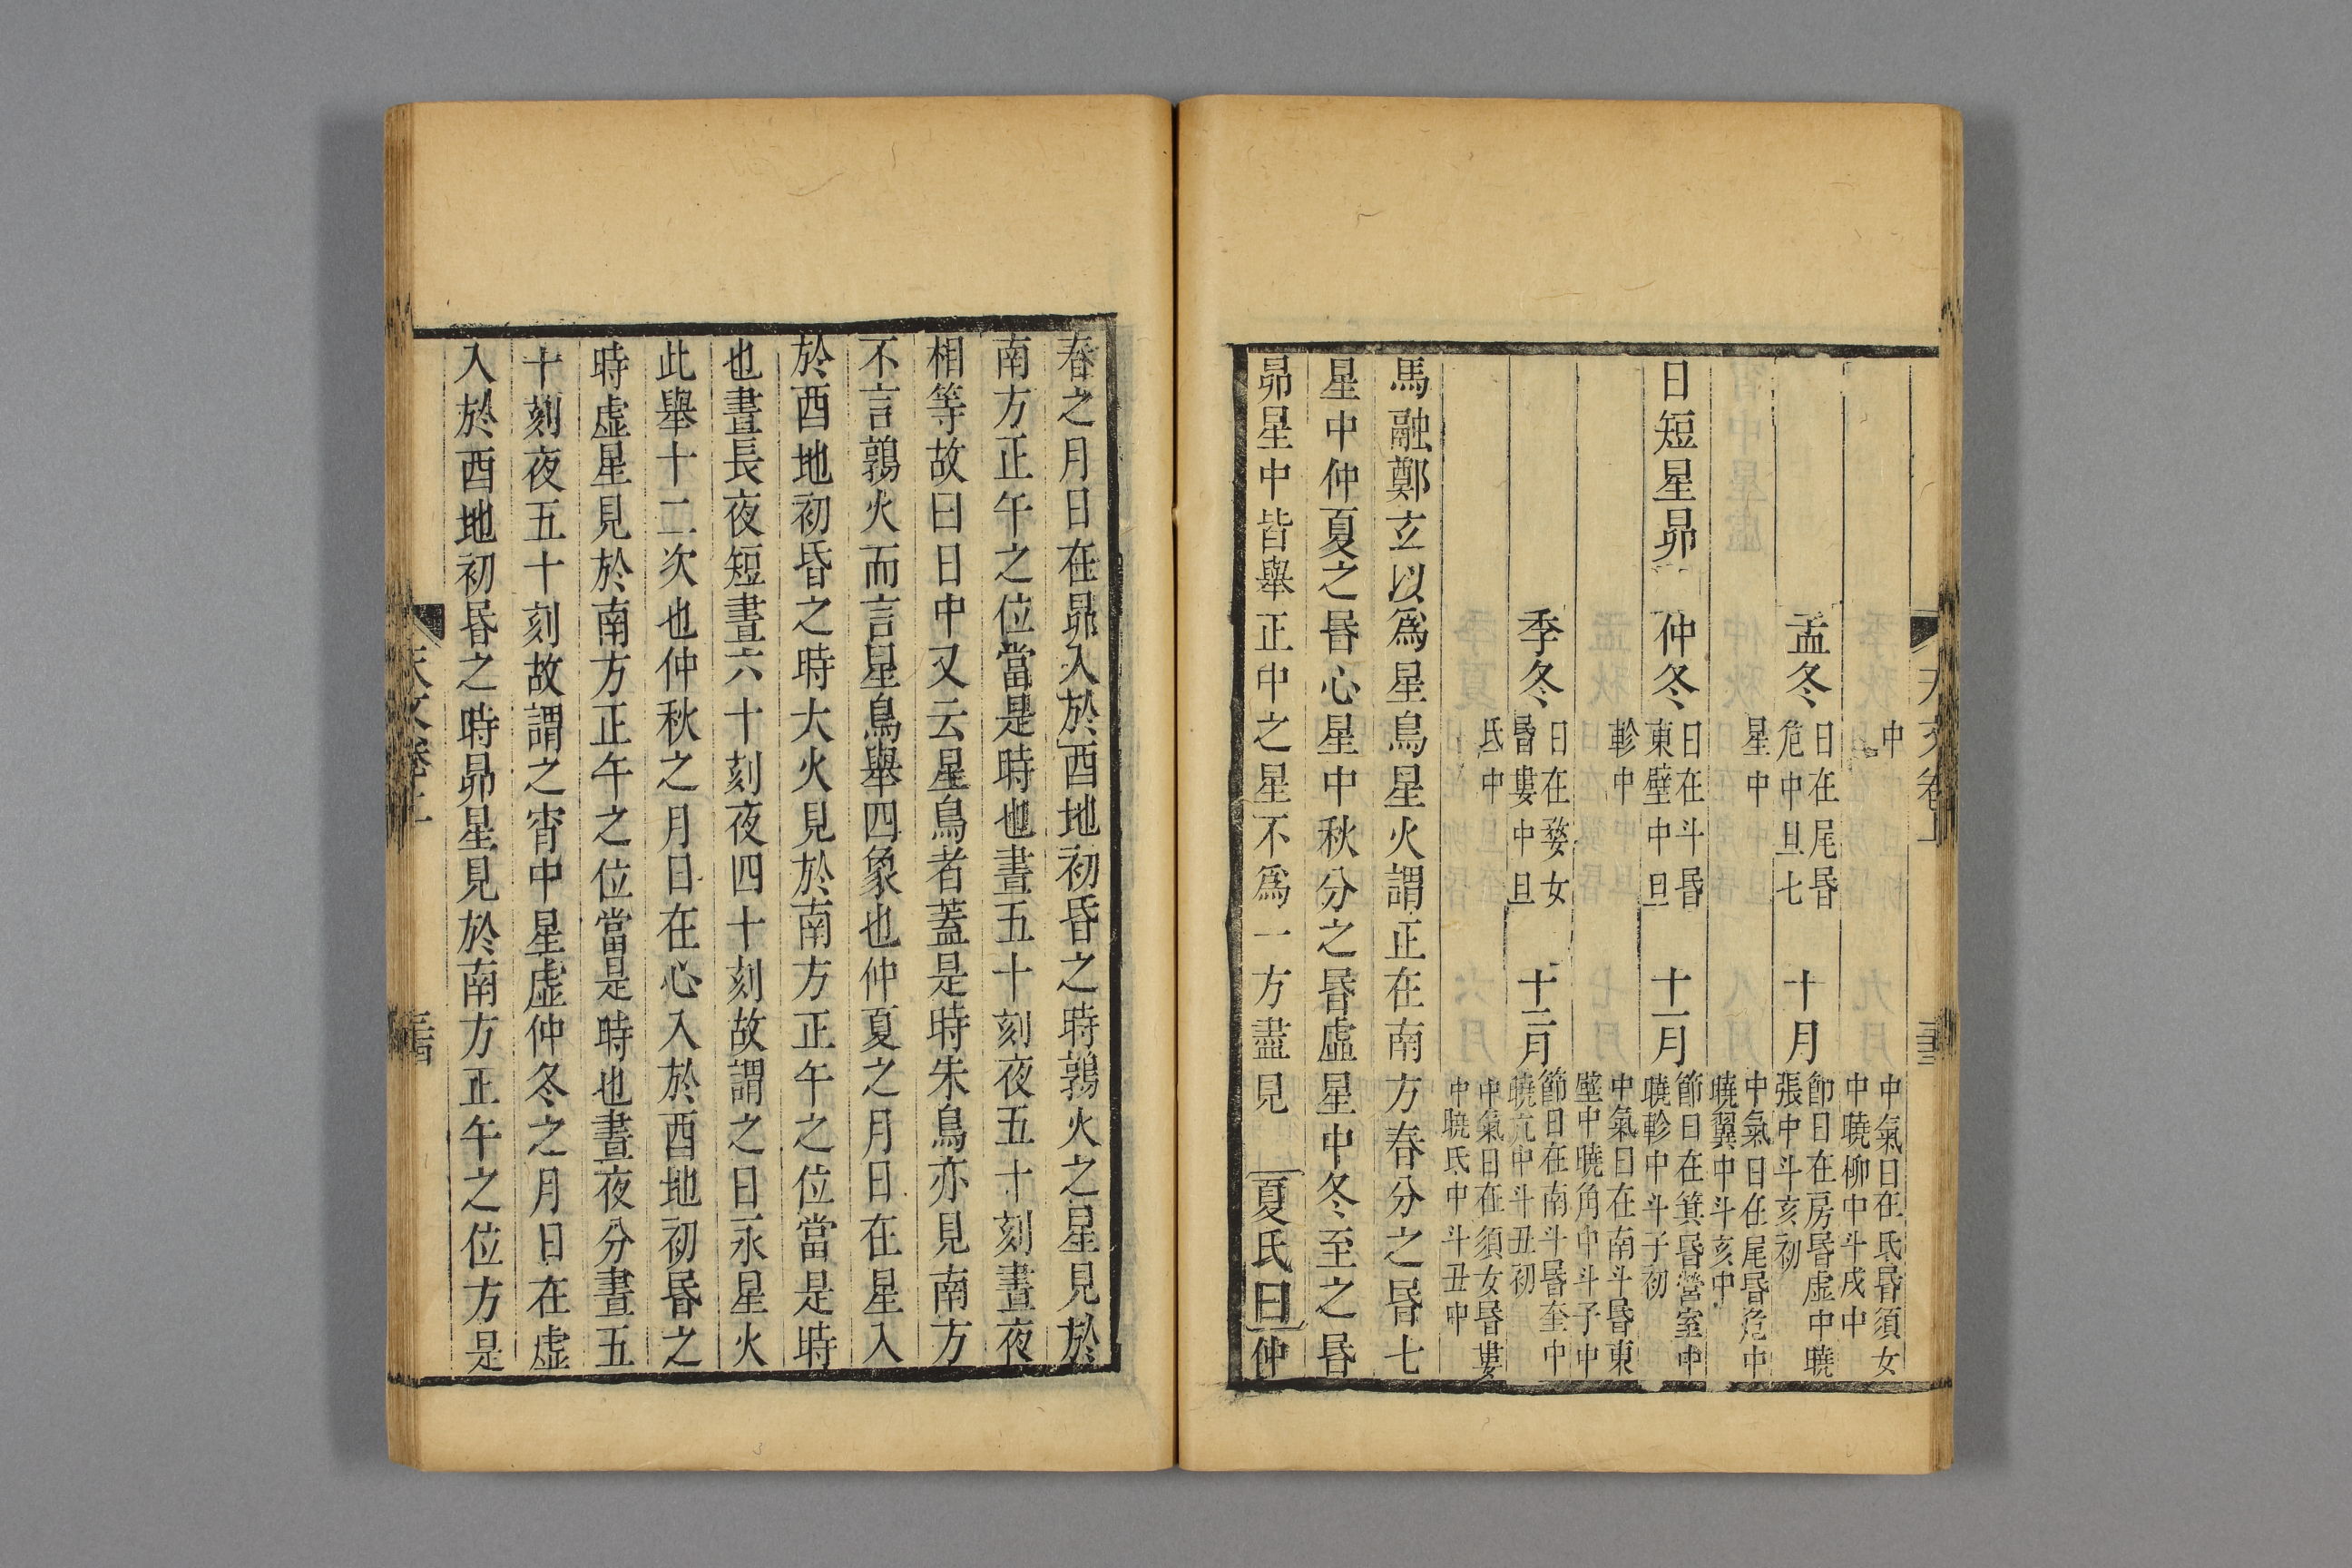 天文卷上
中 中氣日在氐昏須女中曉柳中斗戌中
孟冬 日在尾昏危中旦七 十月 節日在房昏虛中曉張中斗亥初
星中 中氣日在尾昏危中曉翼中斗亥中
日短星昴 仲冬 日在斗昏東壁中旦 十一月 節日在箕昏營室中曉軫中斗子初
軫中 中氣日在南斗昏東壁中曉角中斗子中
季冬 日在婺女昏婁中旦 十二月 節日在南斗昏奎中曉亢中斗丑初
氐中 中氣日在須女昏婁中曉氐中斗丑中
馬融鄭玄以爲星鳥星火謂正在南方春分之昏七
星中仲夏之昏心星中秋分之昏虛星中冬至之昏
昴星中皆舉正中之星不爲一方盡見 夏氏曰仲
春之月日在昴入於酉地初昏之時鶉火之星見於
南方正午之位當是時也晝五十刻夜五十刻晝夜
相等故曰日中又云星鳥者蓋是時朱鳥亦見南方
不言鶉火而言星鳥舉四象也仲夏之月日在星入
於酉地初昏之時大火見於南方正午之位當是時
也晝長夜短晝六十刻夜四十刻故謂之日永星火
此舉十二次也仲秋之月日在心入於酉地初昏之
時虛星見於南方正午之位當是時也晝夜分晝五
十刻夜五十刻故謂之宵中星虛仲冬之月日在虛
入於酉地初昏之時昴星見於南方正午之位方是
天文卷上